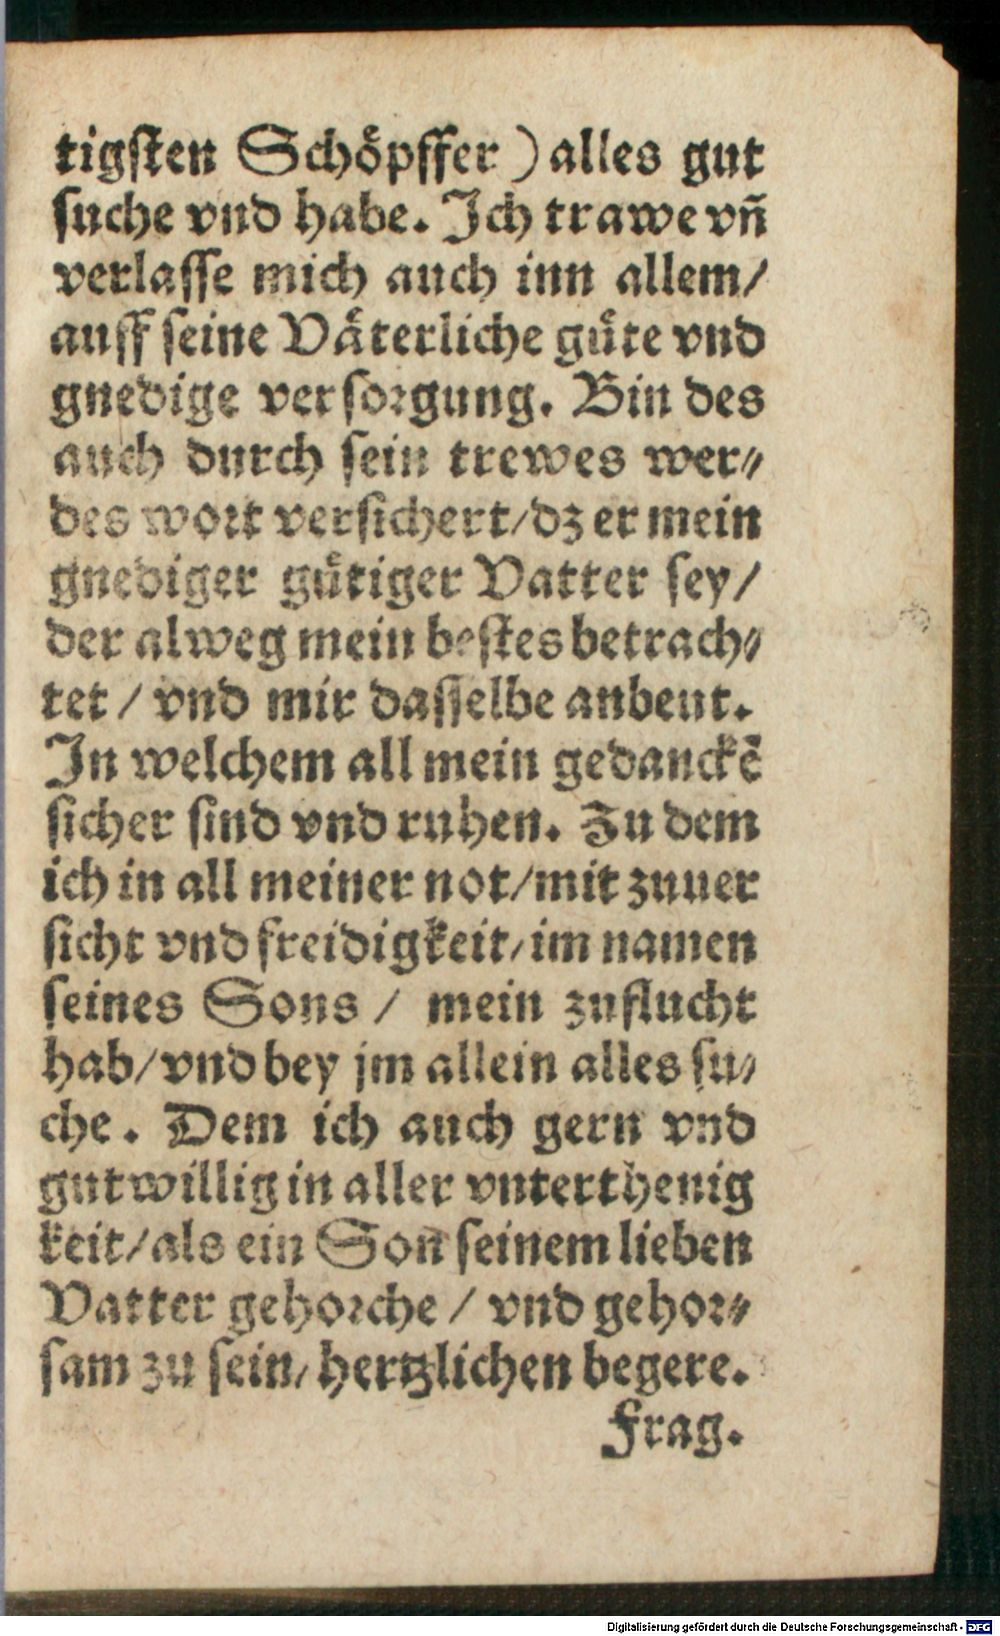 tigſten Schoͤpffer) alles gut
ſuche vnd habe. Ich trawe vñ
verlaſſe mich auch inn allem/
auff ſeine Vaͤterliche guͤte vnd
gnedige verſorgung. Bin des
auch durch ſein trewes wer⸗
des wort verſichert/dz er mein
gnediger guͤtiger Vatter ſey/
der alweg mein beſtes betrach⸗
tet / vnd mir daſſelbe anbeut.
In welchem all mein gedanckẽ
ſicher ſind vnd ruhen. Zu dem
ich in all meiner not/mit zuuer
ſicht vnd freidigkeit/im namen
ſeines Sons / mein zuflucht
hab/vnd bey jm allein alles ſu⸗
che. Dem ich auch gern vnd
gutwillig in aller vnterthenig
keit/als ein Son ſeinem lieben
Vatter gehorche / vnd gehor⸗
ſam zu ſein/hertzlichen begere.
Frag.
Digitalisierung gefördert durch die Deutsche Forschungsgemeinschaft - DFG